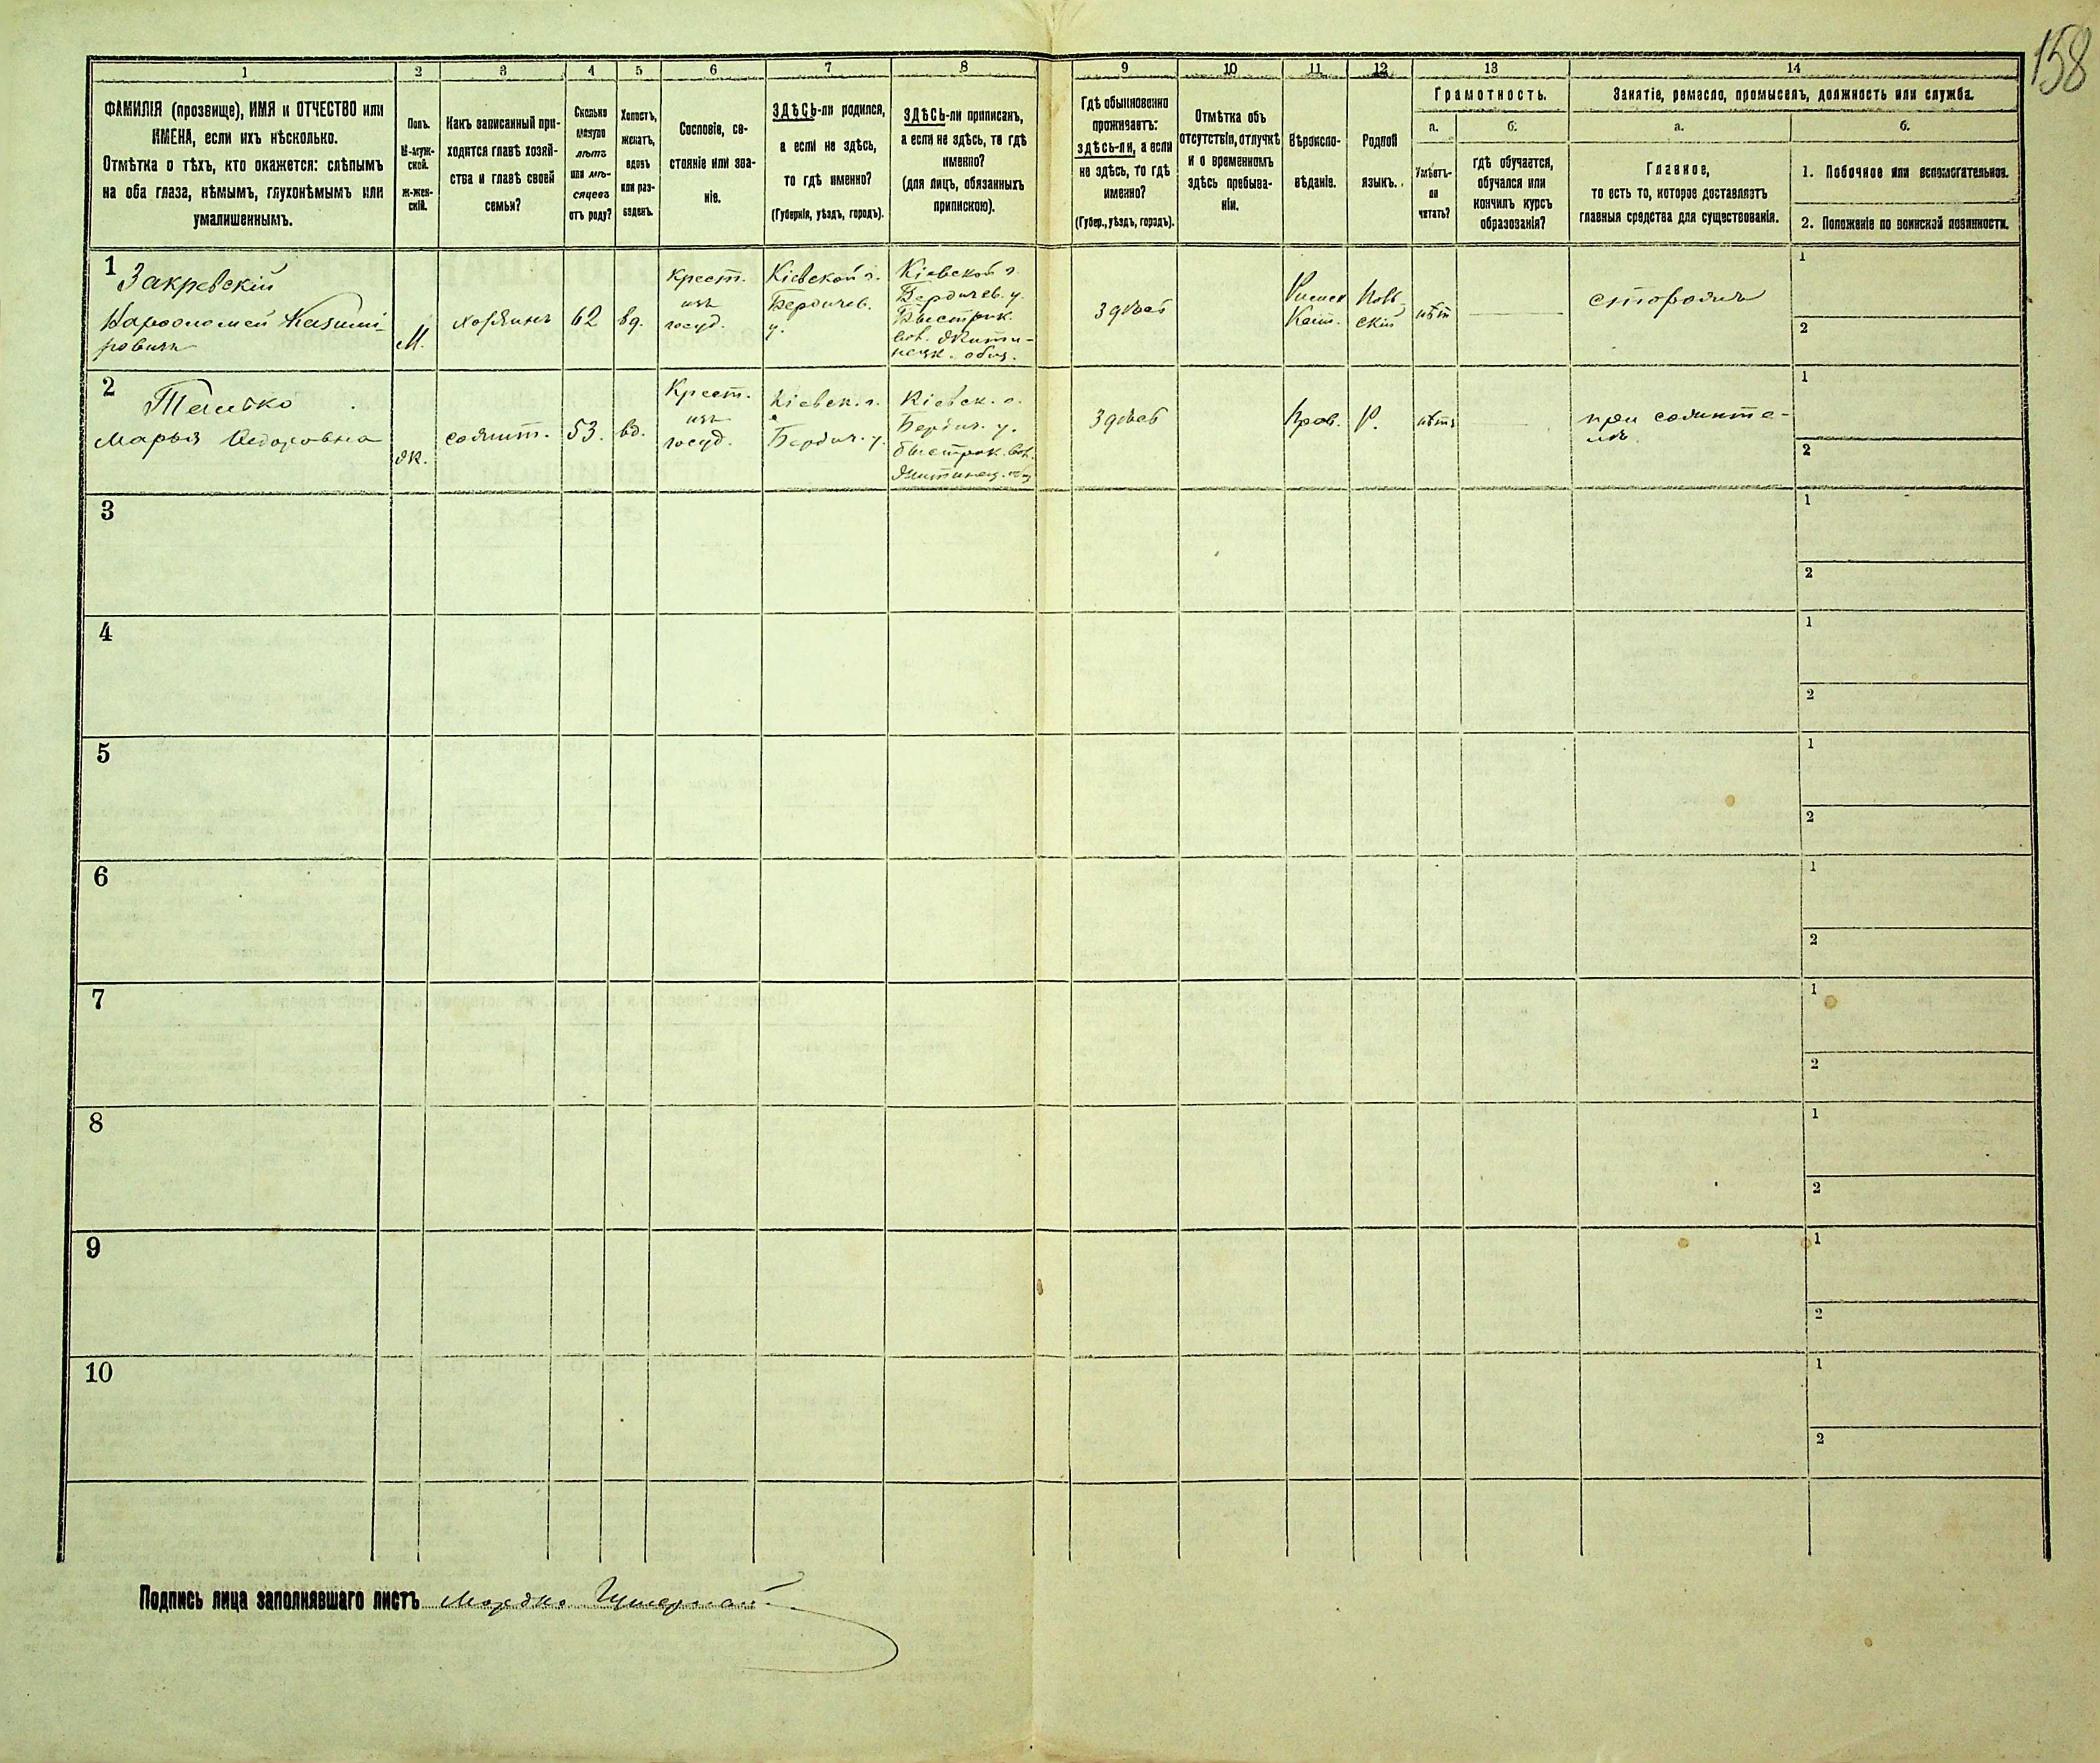 158
1 2 3 4 5 6 7 8 9 10 11 12 13 14
ФАМИЛІЯ (прозвище), ИМЯ и ОТЧЕСТВО или
ИМЕНА, если ихъ нѣсколько.
Отмѣтка о тѣхъ, кто окажется: слѣпымъ
на оба глаза, нѣмымъ, глухонѣмымъ или
умалишеннымъ.
Полъ.
М-муж-
ской.
Ж-жен-
скій.
Какъ записанный при-
ходится главѣ хозяй-
ства и главѣ своей
семьи?
Сколько
минуло
лѣтъ
или мѣ-
сяцевъ
отъ роду?
Холостъ,
женатъ,
вдовъ
или раз-
веденъ.
Сословіе, со-
стояніе или зва-
ніе.
ЗДѢСЬ-ли родился,
а если не здѣсь,
то гдѣ именно?
(Губернія, уѣздъ, городъ).
ЗДѢСЬ-ли приписанъ,
а если не здѣсь, то гдѣ
именно?
(для лицъ, обязанныхъ
припискою).
Гдѣ обыкновенно
проживаетъ:
здѣсь-ли, а если
не здѣсь, то гдѣ
именно?
(Губер., уѣздъ, городъ).
Отмѣтка объ
отсутствіи, отлучкѣ
и о временномъ
здѣсь пребыва-
ніи.
Вѣроиспо-
вѣданіе.
Родной
языкъ.
Грамотность.
а.
Умѣетъ-
ли
читать?
б.
гдѣ обучается,
обучался или
кончилъ курсъ
образованія?
Занятіе, ремесло, промыселъ, должность или служба.
а.
Главное,
то есть то, которое доставляетъ
главныя средства для существованія.
б.
1. Побочное или вспомогательное.
2. Положеніе по воинской повинности.
1
Закревскій
Варфоломей Казими-
ровичъ
М.
хозяинъ
62
вд.
Крест.
изъ
госуд.
Кіевской г.
Бердичев.
у.
Кіевской г.
Бердичев. у.
Быстрик.
вол.
общ.
здѣсь
Римск
Кат.
Поль-
скій
нѣтъ
сторожъ
1
2
2
Марья Ѳедоровна
ж.
сожит.
53.
вд.
Крест.
изъ
госуд.
Кіевск. г.
Бердич. у.
Кіевск. г.
Бердич. у.
Быстрик. вол.
здѣсь
Прав.
Р.
нѣтъ
при сожите-
лѣ
1
2
3
1
2
4
1
2
5
1
2
6
1
2
7
1
2
8
1
2
9
1
2
10
1
2
Подпись лица заполнявшаго листъ Мордко